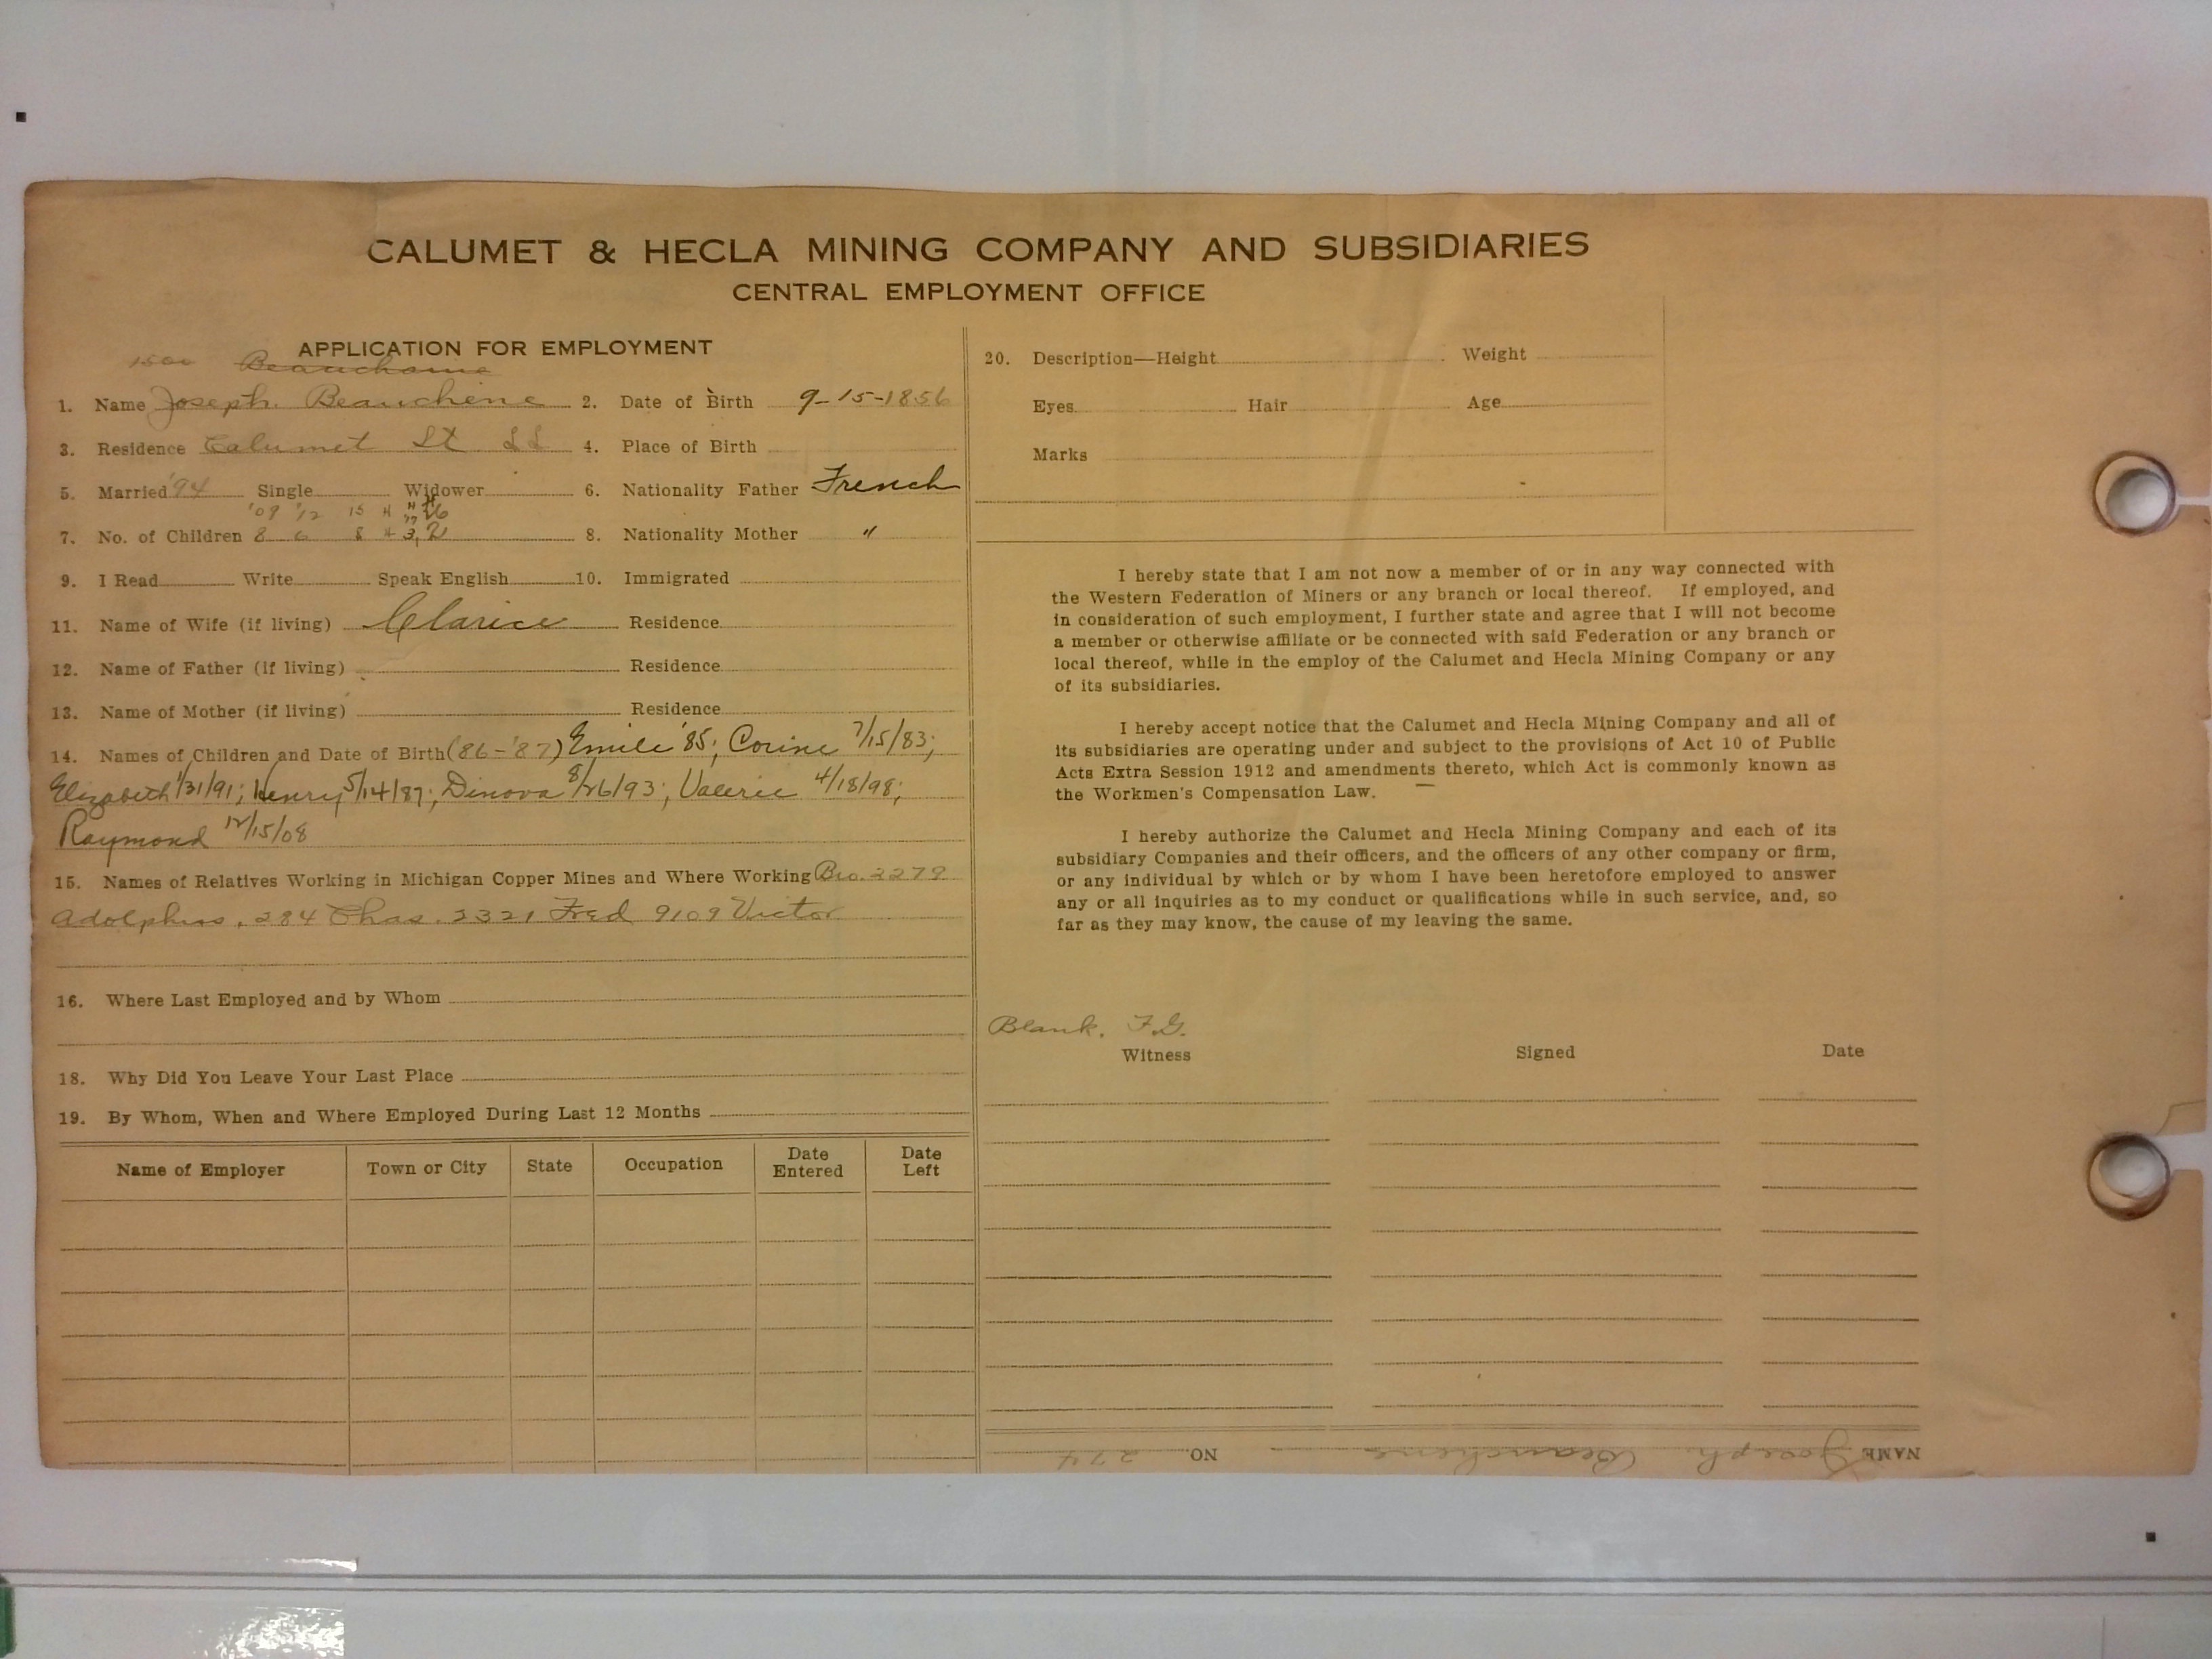 CALUMET & HECLA MINING COMPANY AND SUBSIDIARIES
CENTRAL EMPLOYMENT OFFICE
APPLICATION FOR EMPLOYMENT
Beauchaine
1. Name Joseph Beauchene 2. Date of Birth 9-15-1856
3. Residence Calumet St LL 4. Place of Birth
5. Married '94 Single Widower 6. Nationality Father French
'09 '12 15
7. No. of Children 8 6 8 4 3, 2 8. Nationality Mother "
9. I Read Write Speak English 10. Immigrated
11. Name of Wife (if living) Clarice Residence
12. Name of Father (if living) Residence
13. Name of Mother (if living) Residence
14. Names of Children and Date of Birth (86-'87) Emile '85; Corine 7/15/83;
Elizabeth 1/31/91; Henry 5/14/87; Dinova 8/26/93; Valerie 4/18/98;
Raymond 12/15/08
15. Names of Relatives Working in Michigan Copper Mines and Where Working Bro. 2279
Adolphus, 284 Chas. 2321 Fred 9109 Victor
16. Where Last Employed and by Whom
18. Why Did You Leave Your Last Place
19. By Whom, When and Where Employed During Last 12 Months
Name of Employer Town or City State Occupation Date Entered Date Left
20. Description—Height Weight
Eyes Hair Age
Marks
I hereby state that I am not now a member of or in any way connected with
the Western Federation of Miners or any branch or local thereof. If employed, and
in consideration of such employment, I further state and agree that I will not become
a member or otherwise affiliate or be connected with said Federation or any branch or
local thereof, while in the employ of the Calumet and Hecla Mining Company or any
of its subsidiaries.
I hereby accept notice that the Calumet and Hecla Mining Company and all of
its subsidiaries are operating under and subject to the provisions of Act 10 of Public
Acts Extra Session 1912 and amendments thereto, which Act is commonly known as
the Workmen's Compensation Law.
I hereby authorize the Calumet and Hecla Mining Company and each of its
subsidiary Companies and their officers, and the officers of any other company or firm,
or any individual by which or by whom I have been heretofore employed to answer
any or all inquiries as to my conduct or qualifications while in such service, and, so
far as they may know, the cause of my leaving the same.
Blank. F.G.
Witness Signed Date
NAME Joseph Beauchene NO. 274